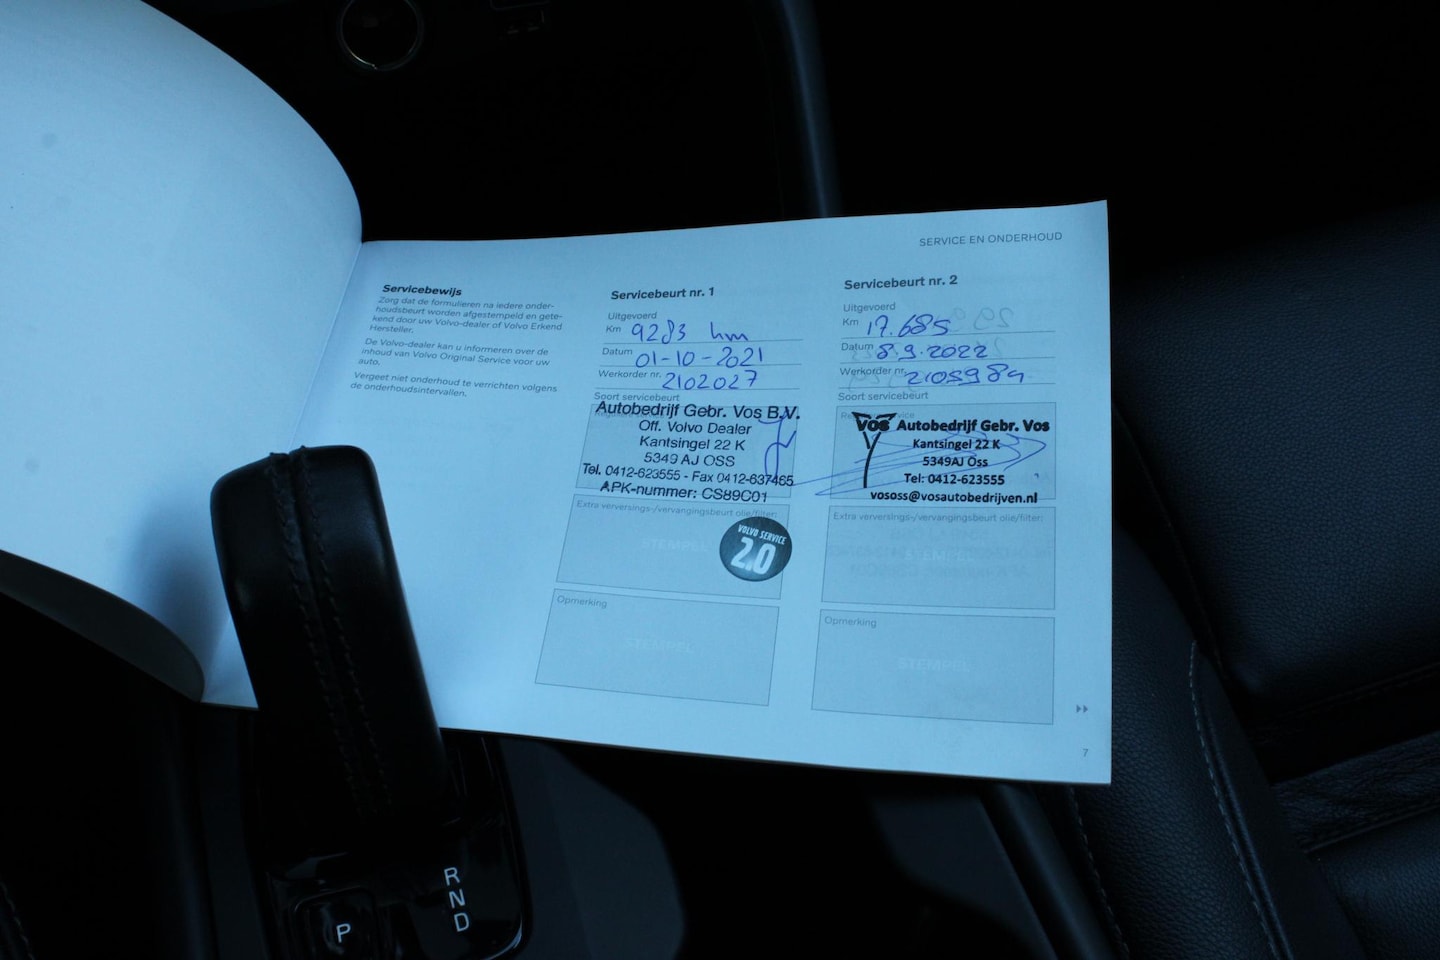 SERVICE EN ONDERHOUD
Servicebewijs
Zorg dat de formulieren na iedere onder-
houdsbeurt worden afgestempeld en gete-
kend door uw Volvo-dealer of Volvo Erkend
Hersteller.
De Volvo-dealer kan u informeren over de
inhoud van Volvo Original Service voor uw
auto.
Vergeet niet onderhoud te verrichten volgens
de onderhoudsintervallen.
Servicebeurt nr. 1
Uitgevoerd
Km 9283 km
Datum 01-10-2021
Werkorder nr. 2102027
Soort servicebeurt
Autobedrijf Gebr. Vos B.V.
Off. Volvo Dealer
Kantsingel 22 K
5349 AJ OSS
Tel. 0412-623555 - Fax 0412-637465
APK-nummer: CS89C01
Extra verversings-/vervangingsbeurt olie/filter:
STEMPEL
VOLVO SERVICE
2.0
Opmerking
STEMPEL
Servicebeurt nr. 2
Uitgevoerd
Km 17.685
Datum 8.9.2022
Werkorder nr.
Soort servicebeurt
Vos Autobedrijf Gebr. Vos
Kantsingel 22 K
5349AJ Oss
Tel: 0412-623555
vososs@vosautobedrijven.nl
Extra verversings-/vervangingsbeurt olie/filter:
STEMPEL
Opmerking
STEMPEL
7
R
N
D
P